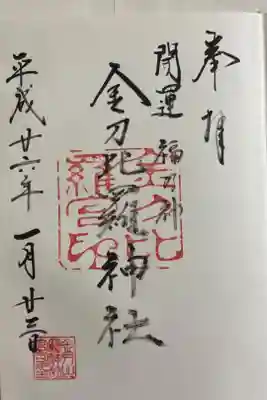 奉拝
開運 福
金刀比羅神社
平成廿六年一月廿三日